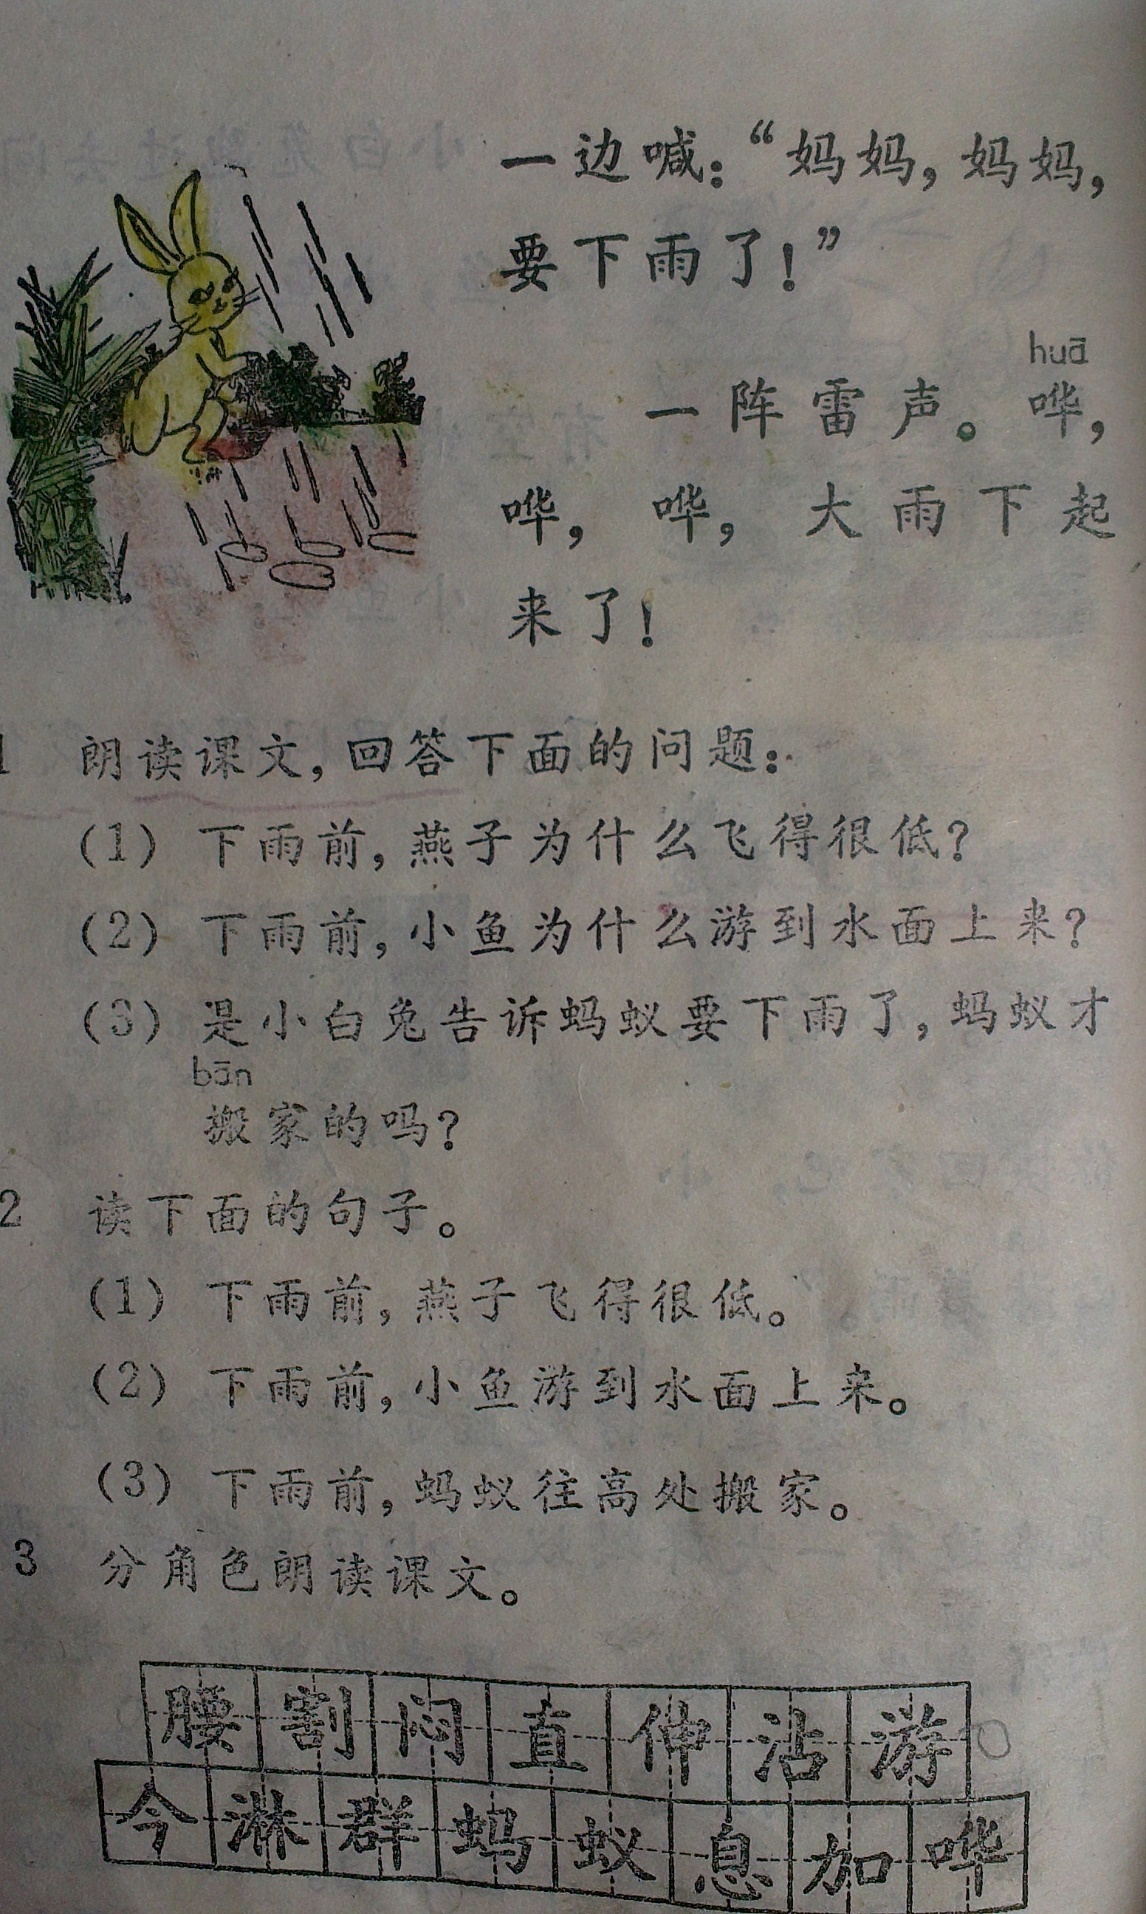 一边喊：“妈妈，妈妈，
要下雨了！”
huā
一阵雷声。哗，
哗，哗，大雨下起
来了！
1 朗读课文，回答下面的问题：
(1) 下雨前，燕子为什么飞得很低？
(2) 下雨前，小鱼为什么游到水面上来？
(3) 是小白兔告诉蚂蚁要下雨了，蚂蚁才
bān
搬家的吗？
2 读下面的句子。
(1) 下雨前，燕子飞得很低。
(2) 下雨前，小鱼游到水面上来。
(3) 下雨前，蚂蚁往高处搬家。
3 分角色朗读课文。
腰割闷直伸沾游
今淋群蚂蚁息加哗